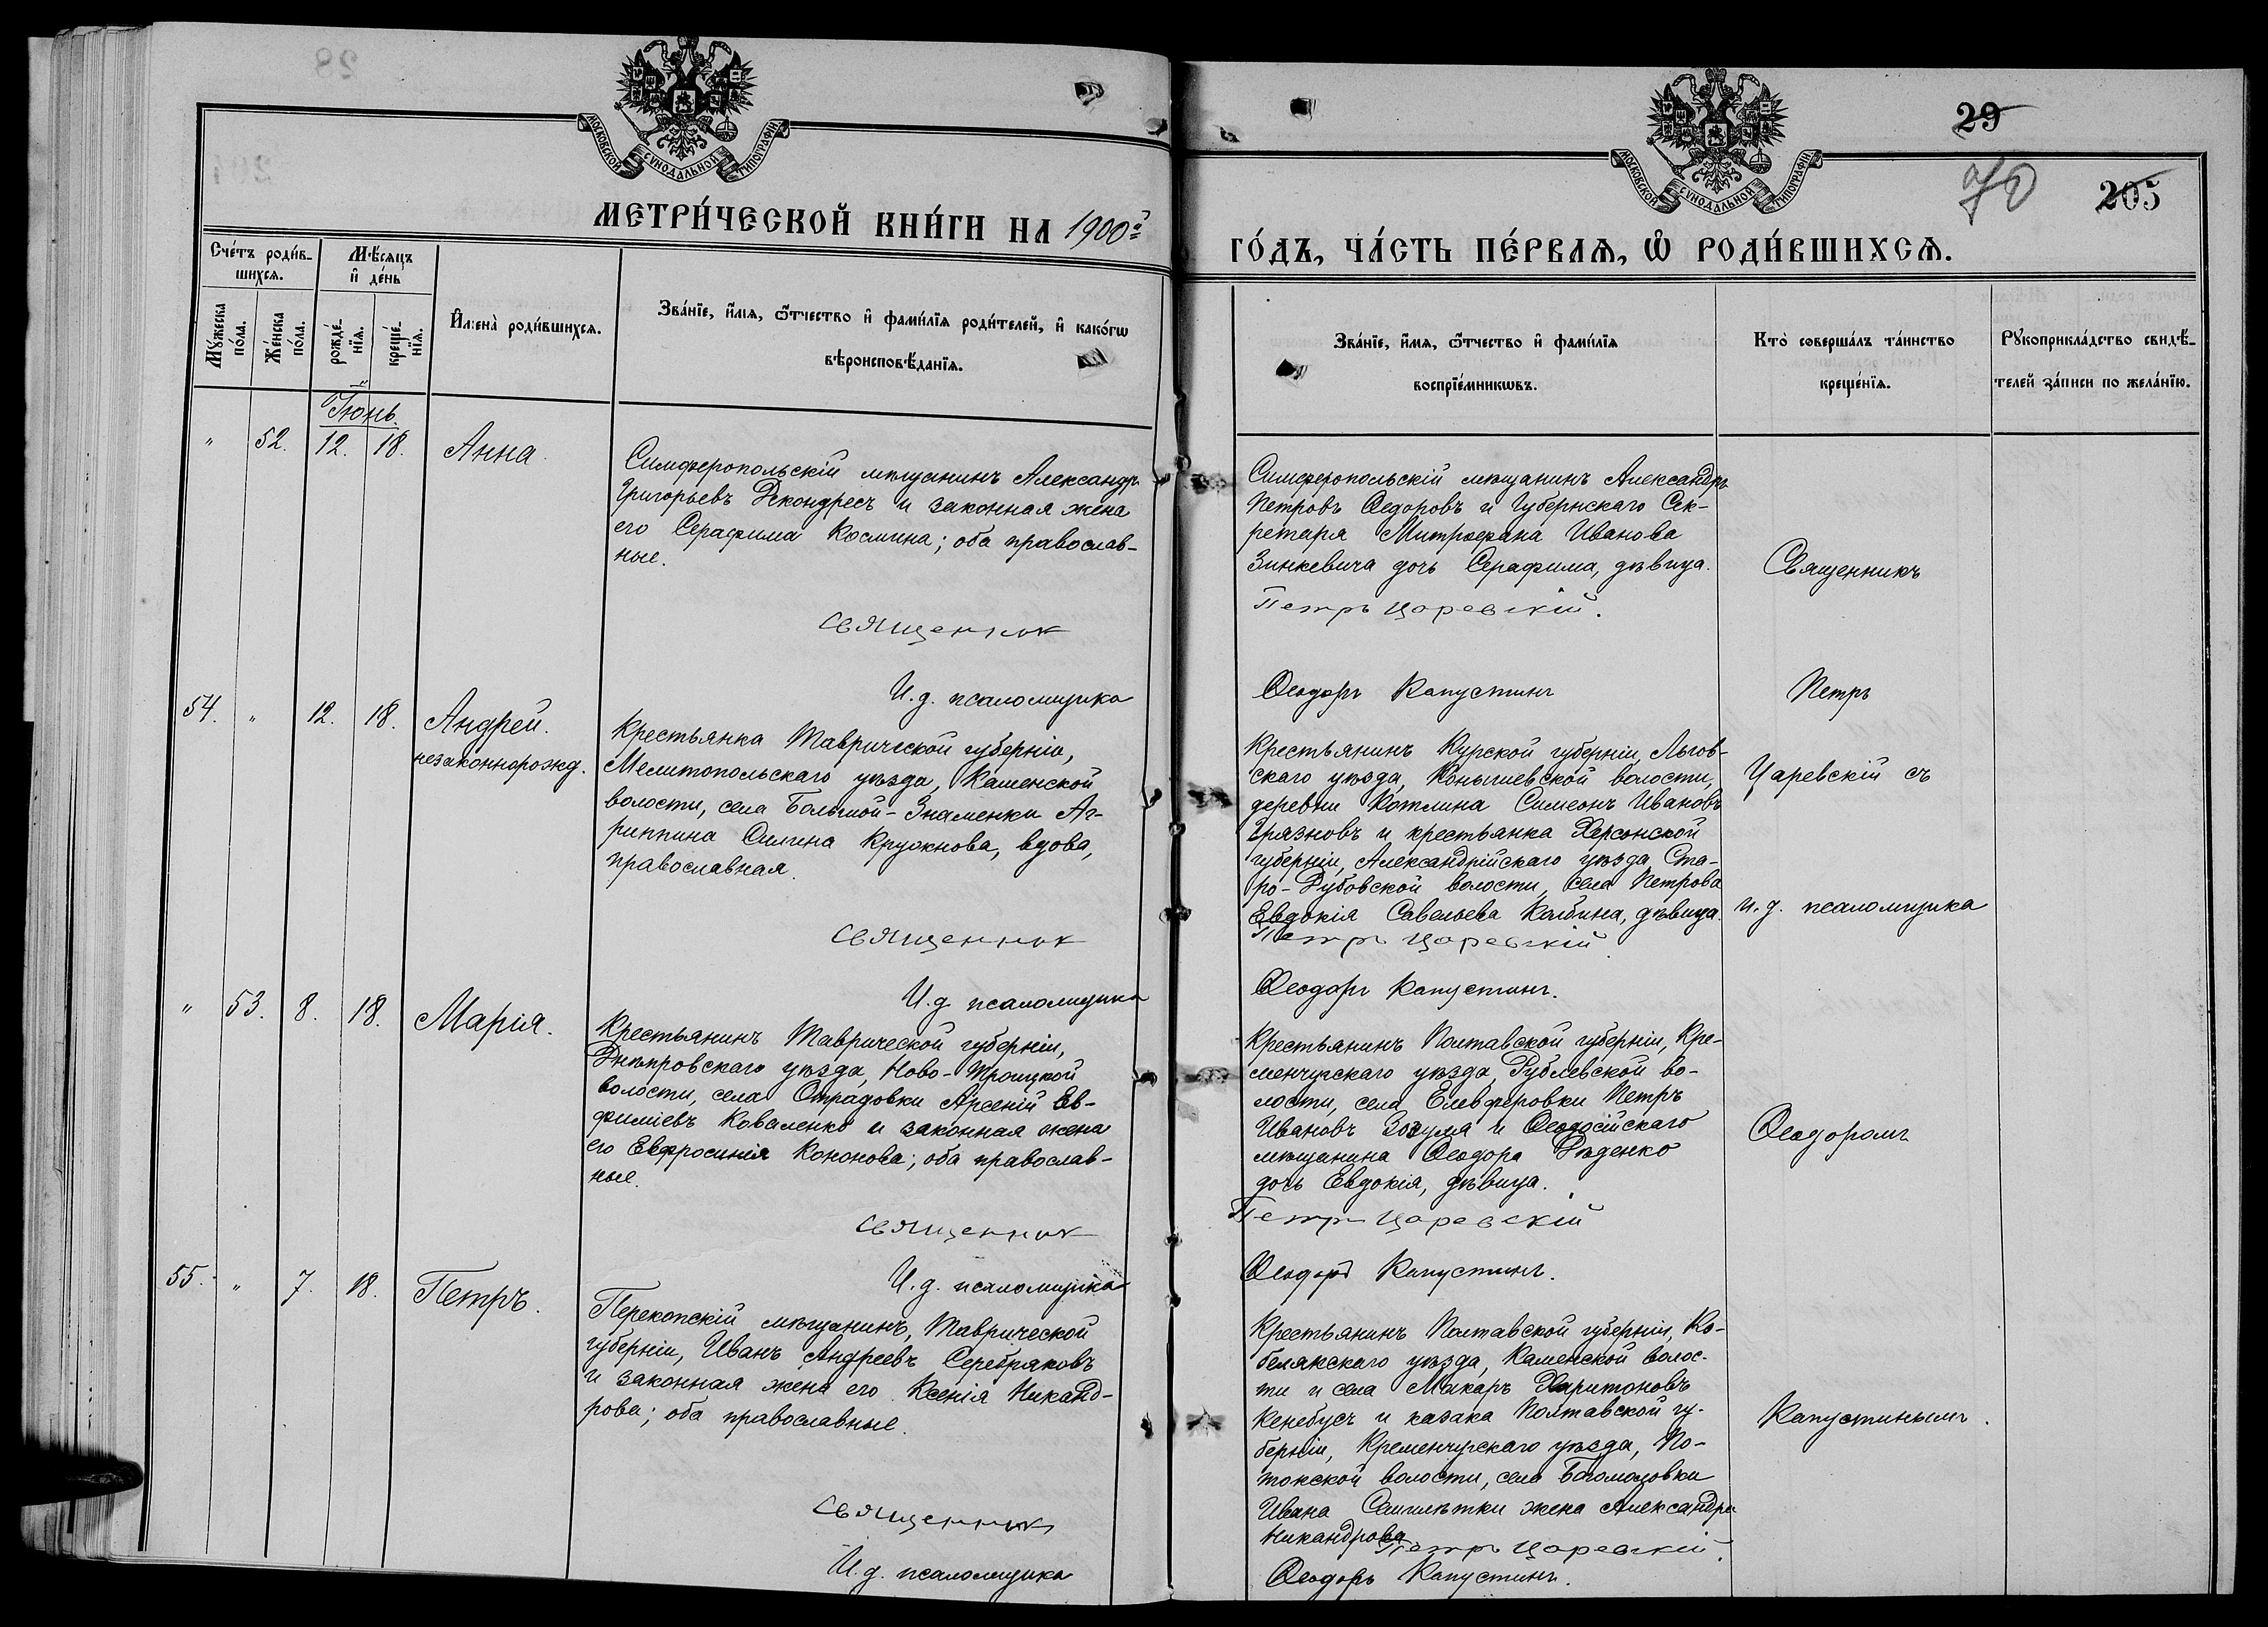 29
70
205
МОСКОВСКОЙ СѴНОДАЛЬНОЙ ТИПОГРАФІИ.
МОСКОВСКОЙ СѴНОДАЛЬНОЙ ТИПОГРАФІИ.
МЕТРИ́ЧЕСКОЙ КНИ́ГИ НА 1900й
ГО́ДЪ, ЧА́СТЬ ПЕ́РВАѦ, Ѽ РОДИ́ВШИХСѦ.
Сче́тъ роди́в-
шихся.
Мѣ́сяцъ
и҆ де́нь
Мꙋ́жеска
по́ла.
Же́нска
по́ла.
рожде́-
нїя.
креще́-
нїя.
И҆мена̀ роди́вшихся.
Зва́нїе, и҆́мя, ѻ҆́тчество и҆ фами́лїя роди́телей, и҆ како́гѡ
вѣроисповѣ́данїя.
Зва́нїе, и҆́мя, ѻ҆́тчество и҆ фами́лїя
воспрїе́мникѡвъ.
Кто̀ соверша́лъ та́инство
креще́нїя.
Рꙋкоприкла́дство свидѣ́-
телей за́писи по жела́нїю.
Іюнь.
" 52. 12. 18. Анна.
Симферопольскій мѣщанинъ Александръ
Григорьевъ Декондресъ и законная жена
его Серафима Космина; оба православ-
ные.
Священник
И. д. псаломщика
Симферопольскій мѣщанинъ Александръ
Петровъ Ѳедоровъ и Губернскаго Сек-
ретаря Митрофана Иванова
Зинкевича дочь Серафима, дѣвица.
Петръ Царевскій.
Ѳеодоръ Капустинъ
Священникъ
Петръ
Царевскій съ
и. д. псаломщика
Ѳеодоромъ
Капустинымъ.
54. " 12. 18. Андрей.
незаконнорожд.
Крестьянка Таврической губерніи,
Мелитопольскаго уѣзда, Каменской
волости, села Большой-Знаменки Аг-
риппина Силина Кружнова, вдова,
православная.
Священник
И. д. псаломщика
Крестьянинъ Курской губерніи, Льгов-
скаго уѣзда, Конышевской волости,
деревни Котлина Симеонъ Ивановъ
Грязновъ и крестьянка Херсонской
губерніи, Александрійскаго уѣзда Ста-
ро-Дубовской волости, села Петрова
Евдокія Савельева Колбина, дѣвица.
Петръ Царевскій.
Ѳеодоръ Капустинъ.
" 53. 8. 18. Марія.
Крестьянинъ Таврической губерніи,
Днѣпровскаго уѣзда, Ново-Троицкой
волости, села Отрадовки Арсеній Ев-
фиміевъ Коваленко и законная жена
его Евфросинія Кононова; оба православ-
ные.
Священник
И. д. псаломщика
Крестьянинъ Полтавской губерніи, Кре-
менчугскаго уѣзда, Рублевской во-
лости, села Елевферовки Петръ
Ивановъ Зозуля и Ѳеодосійскаго
мѣщанина Ѳеодора Дѣденко
дочь Евдокія, дѣвица.
Петръ Царевскій
Ѳеодоръ Капустинъ.
55. " 7. 18. Петръ.
Перекопскій мѣщанинъ, Таврической
губерніи, Иванъ Андреевъ Серебряковъ
и законная жена его Ксенія Никанд-
рова; оба православные.
Священник
И. д. псаломщика
Крестьянинъ Полтавской губерніи, Ко-
белякскаго уѣзда, Каменской волос-
ти и села Макаръ Харитоновъ
Кенебусъ и казака Полтавской гу-
берніи, Кременчугскаго уѣзда, По-
токской волости, села Богомоловки
Ивана Самилѣтки жена Александра
Никандрова
Петръ Царевскій.
Ѳеодоръ Капустинъ.